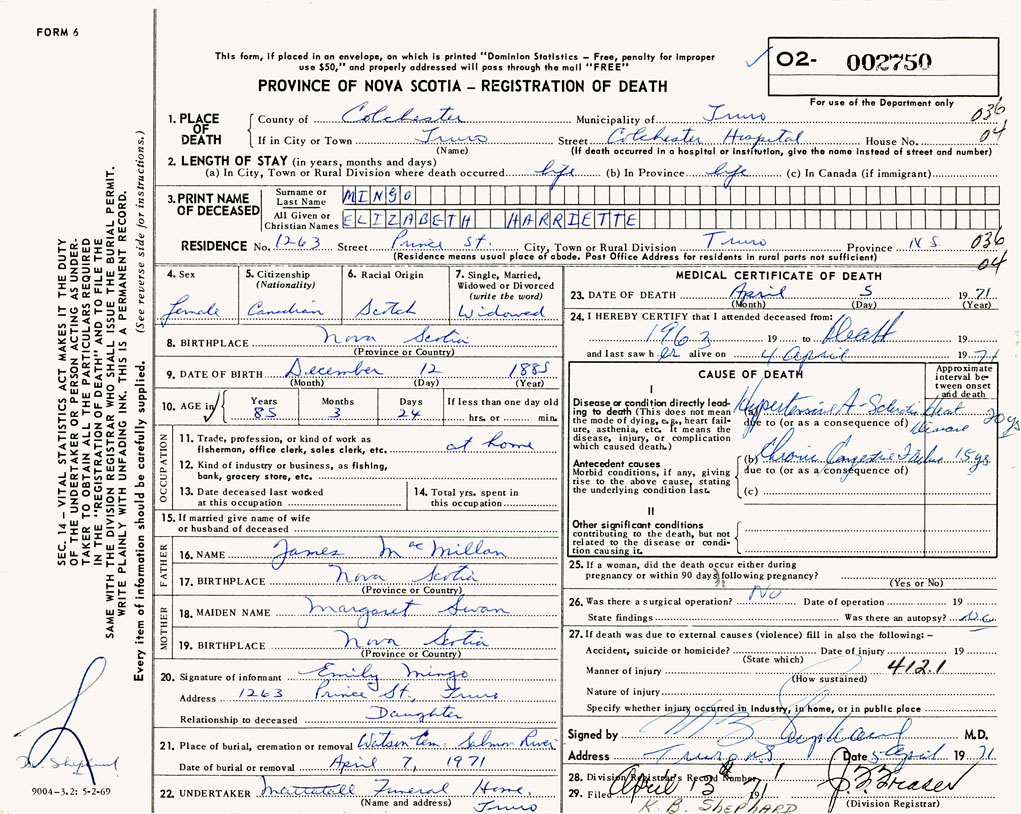 FORM 6
This form, if placed in an envelope, on which is printed "Dominion Statistics – Free, penalty for improper
use $50," and properly addressed will pass through the mail "FREE"
O2- 002750
PROVINCE OF NOVA SCOTIA – REGISTRATION OF DEATH
For use of the Department only
1. PLACE OF DEATH County of Colchester Municipality of Truro 036
If in City or Town Truro Street Colchester Hospital House No. 04
(Name) (If death occurred in a hospital or institution, give the name instead of street and number)
2. LENGTH OF STAY (in years, months and days)
(a) In City, Town or Rural Division where death occurred life (b) In Province life (c) In Canada (if immigrant)
3. PRINT NAME OF DECEASED Surname or Last Name MINGO
All Given or Christian Names ELIZABETH HARRIETTE
RESIDENCE No. 1263 Street Prince St. City, Town or Rural Division Truro Province N S 036
(Residence means usual place of abode. Post Office Address for residents in rural parts not sufficient) 04
4. Sex
Female
5. Citizenship
(Nationality)
Canadian
6. Racial Origin
Scotch
7. Single, Married,
Widowed or Divorced
(write the word)
Widowed
8. BIRTHPLACE Nova Scotia
(Province or Country)
9. DATE OF BIRTH December 12 1885
(Month) (Day) (Year)
10. AGE in Years Months Days If less than one day old
85 3 24 hrs. or min.
OCCUPATION
11. Trade, profession, or kind of work as
fisherman, office clerk, sales clerk, etc. at home
12. Kind of industry or business, as fishing,
bank, grocery store, etc.
13. Date deceased last worked
at this occupation
14. Total yrs. spent in
this occupation
15. If married give name of wife
or husband of deceased
FATHER
16. NAME James MacMillan
17. BIRTHPLACE Nova Scotia
(Province or Country)
MOTHER
18. MAIDEN NAME Margaret Swan
19. BIRTHPLACE Nova Scotia
(Province or Country)
20. Signature of informant Emily Mingo
Address 1263 Prince St., Truro
Relationship to deceased Daughter
21. Place of burial, cremation or removal Watson Cem. Salmon River
Date of burial or removal April 7, 1971
22. UNDERTAKER Mattatall Funeral Home,
(Name and address) Truro
MEDICAL CERTIFICATE OF DEATH
23. DATE OF DEATH April 5 1971
(Month) (Day) (Year)
24. I HEREBY CERTIFY that I attended deceased from:
1963 19 to Death
and last saw her alive on 4 April 1971
CAUSE OF DEATH
Approximate
interval be-
tween onset
and death
I
Disease or condition directly lead-
ing to death (This does not mean
the mode of dying, e.g., heart fail-
ure, asthenia, etc. It means the
disease, injury, or complication
which caused death.)
(a) Hypertensive A-Sclerotic Heart Disease 20 ys
due to (or as a consequence of)
Antecedent causes
Morbid conditions, if any, giving
rise to the above cause, stating
the underlying condition last.
(b) Chronic Congestive Failure 15 ys
due to (or as a consequence of)
(c)
II
Other significant conditions
contributing to the death, but not
related to the disease or condi-
tion causing it.
25. If a woman, did the death occur either during
pregnancy or within 90 days following pregnancy?
(Yes or No)
26. Was there a surgical operation? No Date of operation 19
State findings Was there an autopsy? No
27. If death was due to external causes (violence) fill in also the following: –
Accident, suicide or homicide? Date of injury 19
(State which)
Manner of injury 412.1
(How sustained)
Nature of injury
Specify whether injury occurred in industry, in home, or in public place
Signed by M.D.
Address Truro NS Date 5 April 1971
28. Division Registrar's Record Number
29. Filed April 13 1971 J. F. Fraser
K. B. SHEPHARD (Division Registrar)
SEC. 14 – VITAL STATISTICS ACT MAKES IT THE DUTY
OF THE UNDERTAKER OR PERSON ACTING AS UNDER-
TAKER TO OBTAIN ALL THE PARTICULARS REQUIRED
IN THE "REGISTRATION OF DEATH" AND TO FILE THE
SAME WITH THE DIVISION REGISTRAR WHO SHALL ISSUE THE BURIAL PERMIT.
WRITE PLAINLY WITH UNFADING INK. THIS IS A PERMANENT RECORD.
Every item of information should be carefully supplied. (See reverse side for instructions.)
Dr. Shephard
9004-3.2: 5-2-69